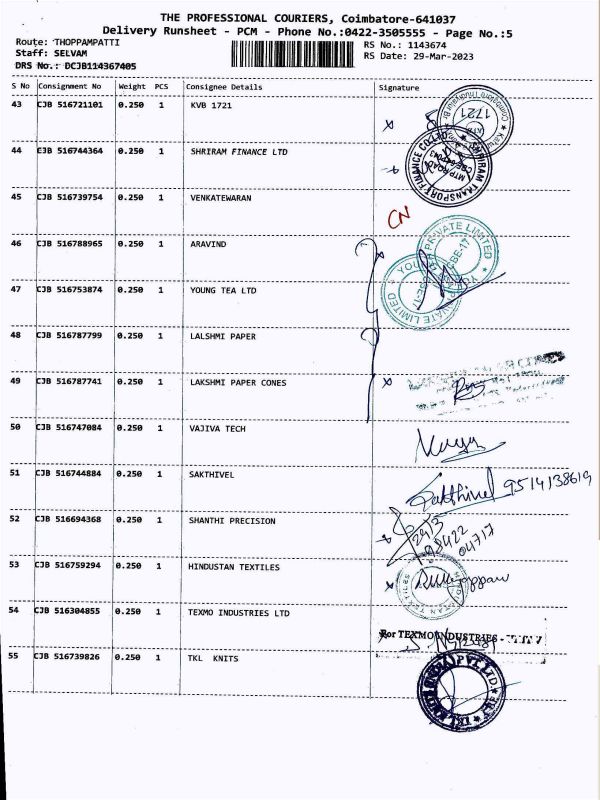 THE PROFESSIONAL COURIERS, Coimbatore-641037
Delivery Runsheet - PCM - Phone No.:0422-3505555 - Page No.:5
Route: THOPPAMPATTI
RS No.: 1143674
Staff: SELVAM
RS Date: 29-Mar-2023
DRS No.: DCJB114367405
S No Consignment No Weight PCS Consignee Details Signature
43 CJB 516721101 0.250 1 KVB 1721
1721
44 CJB 516744364 0.250 1 SHRIRAM FINANCE LTD
SHRIRAM TRANSPORT FINANCE CO. LTD.
MTP ROAD
45 CJB 516739754 0.250 1 VENKATEWARAN
CN
46 CJB 516788965 0.250 1 ARAVIND
PRIVATE LIMITED
CBE-17
47 CJB 516753874 0.250 1 YOUNG TEA LTD
PRIVATE LIMITED
48 CJB 516787799 0.250 1 LALSHMI PAPER
49 CJB 516787741 0.250 1 LAKSHMI PAPER CONES
50 CJB 516747084 0.250 1 VAJIVA TECH
51 CJB 516744884 0.250 1 SAKTHIVEL
Sakthivel 9514138619
52 CJB 516694368 0.250 1 SHANTHI PRECISION
29/3
98422
04717
53 CJB 516759294 0.250 1 HINDUSTAN TEXTILES
HINDUSTAN TEXTILES
54 CJB 516304855 0.250 1 TEXMO INDUSTRIES LTD
For TEXMO INDUSTRIES -
55 CJB 516739826 0.250 1 TKL KNITS
PVT. LTD.